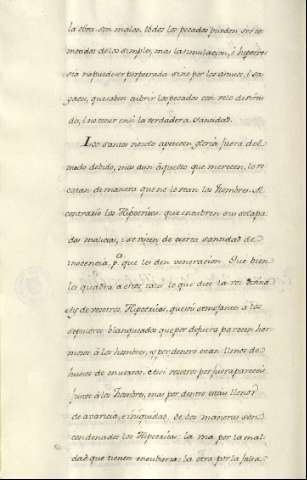 la otra son malos. todos los pecados pueden ser co
metidos de los simples, mas la simulacion, è hipocre
sia no puede ser perpetrada sino por los astutos, i sa
gaces, que saben cubrir los pecados con velo de
do, i no tener en si la verdadera santidad.
Los santos no solo aperecen, gloria fuera del
modo debido, mas aun aquello que merecen, lo re
catan de manera que no lo vean los hombres. Al
contrario los Hipocritas que encubren sus solapa
das malicias, i se visten de cierta santidad de
inocencia, pa que les den veneracion. Que bien
les quadra a estos, lo que dice la voz divina
ay de vosotros Hipocritas, que sois semejantes à los
sepulcros blanqueados que por defuera parecen her
mosos à los hombres, y por dentro estan llenos de
huesos de muertos. Assi vosotros por fuera pareceis
justos à los hombres, mas por dentro estais llenos
de avaricia, e iniquidad. de dos maneras son
condenados los Hipocritas: la una por la mal
dad que tienen encubierta: la otra por la falsa